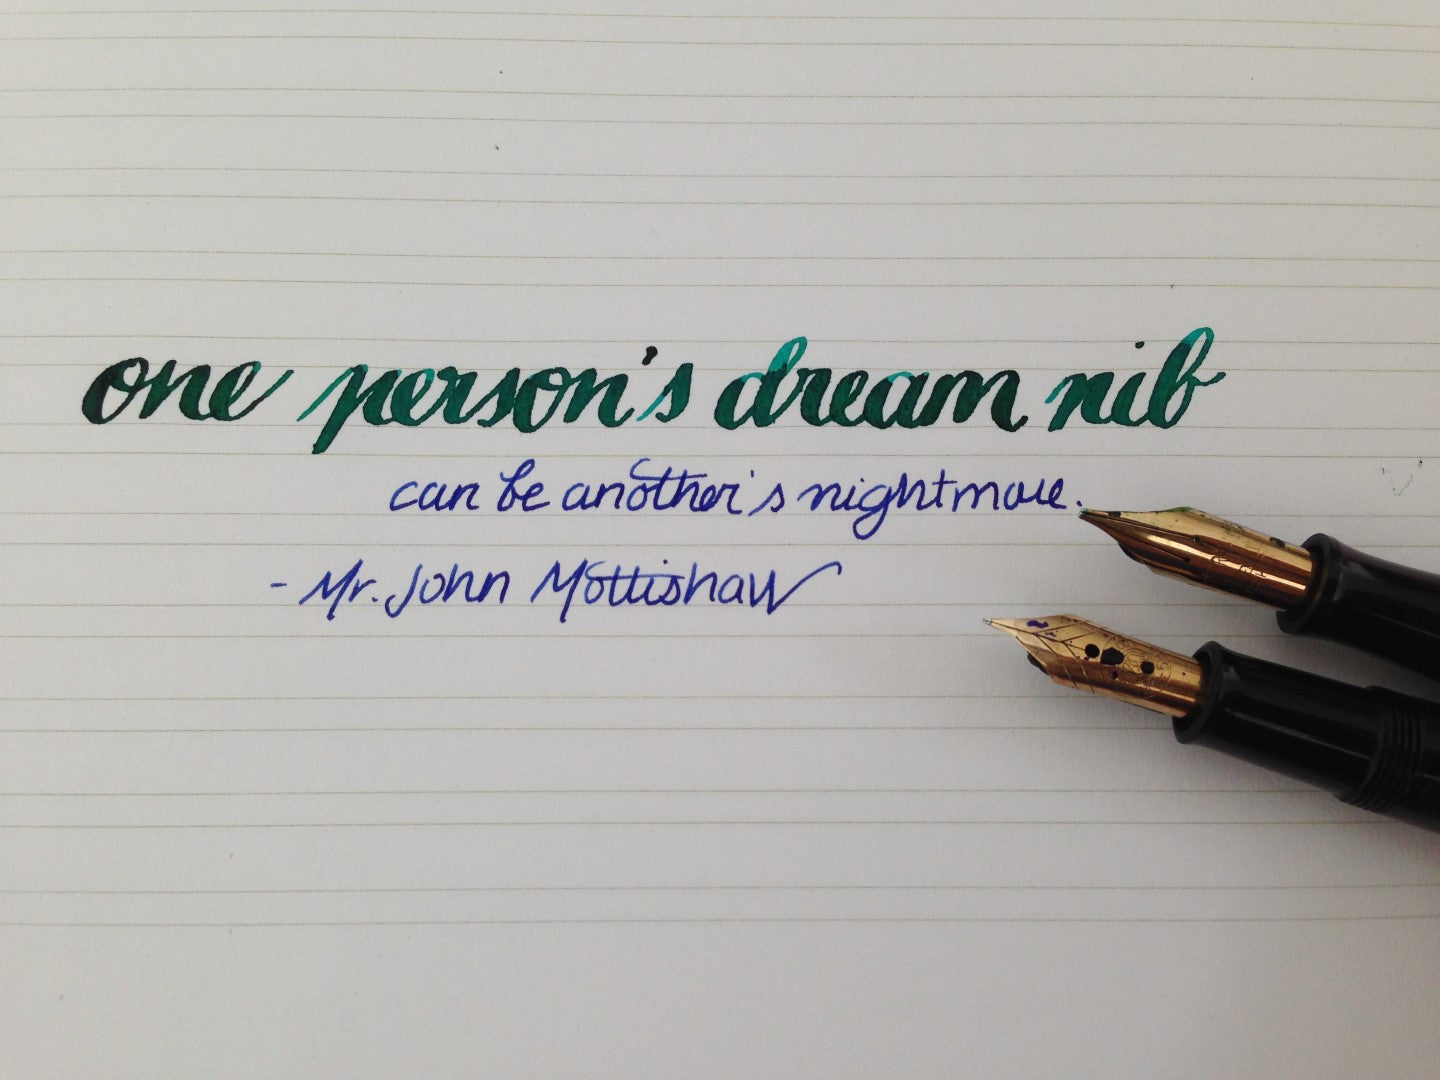 one person's dream nib
can be another's nightmare.
- Mr. John Mottishaw